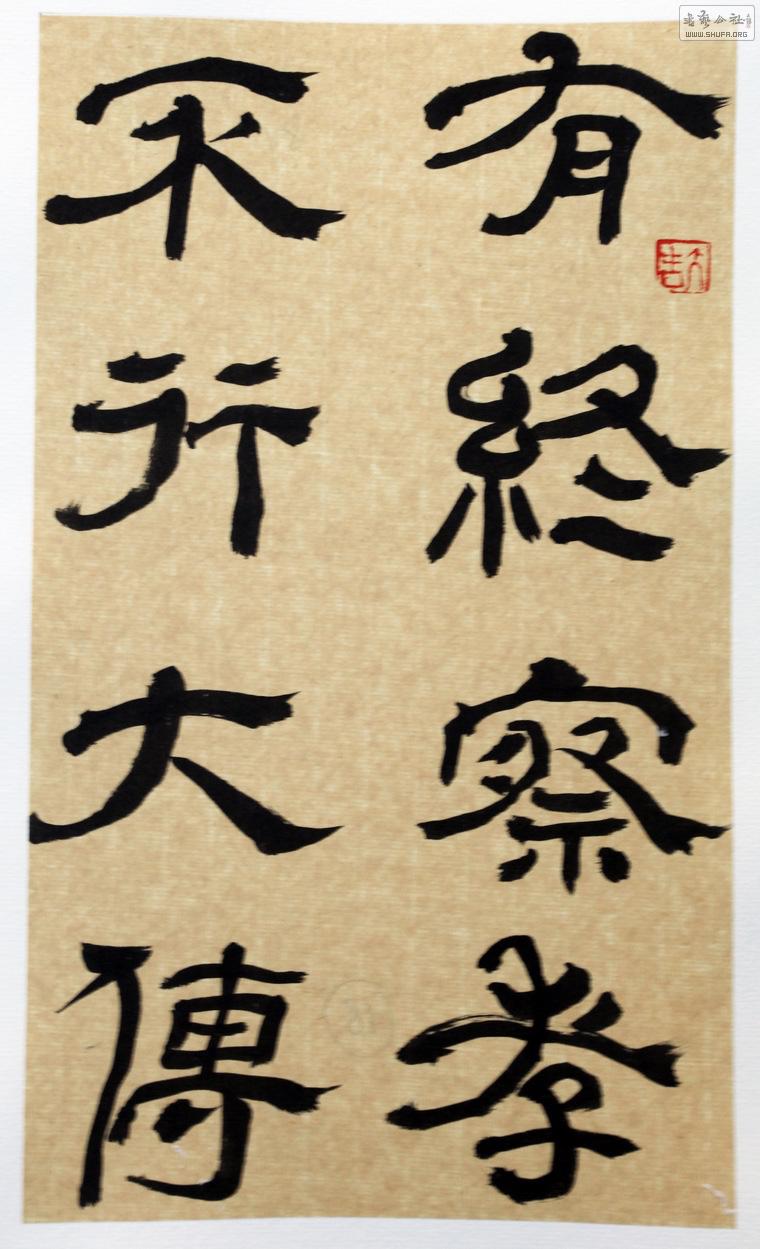 書藝公社
WWW.SHUFA.ORG
有終察孝
不行大傅